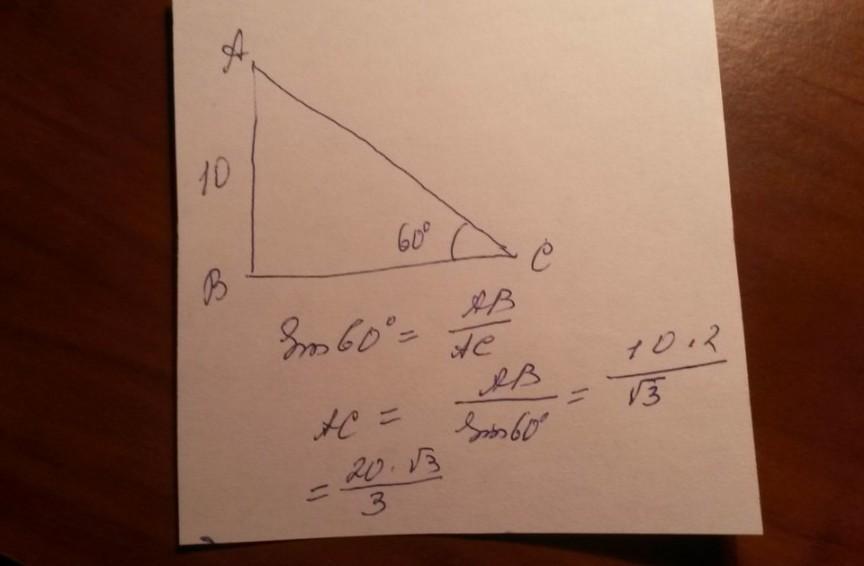 A
10
60°
B
C
Sin 60° = AB/AC
AC = AB/Sin 60° = 10·2/√3
= 20·√3/3